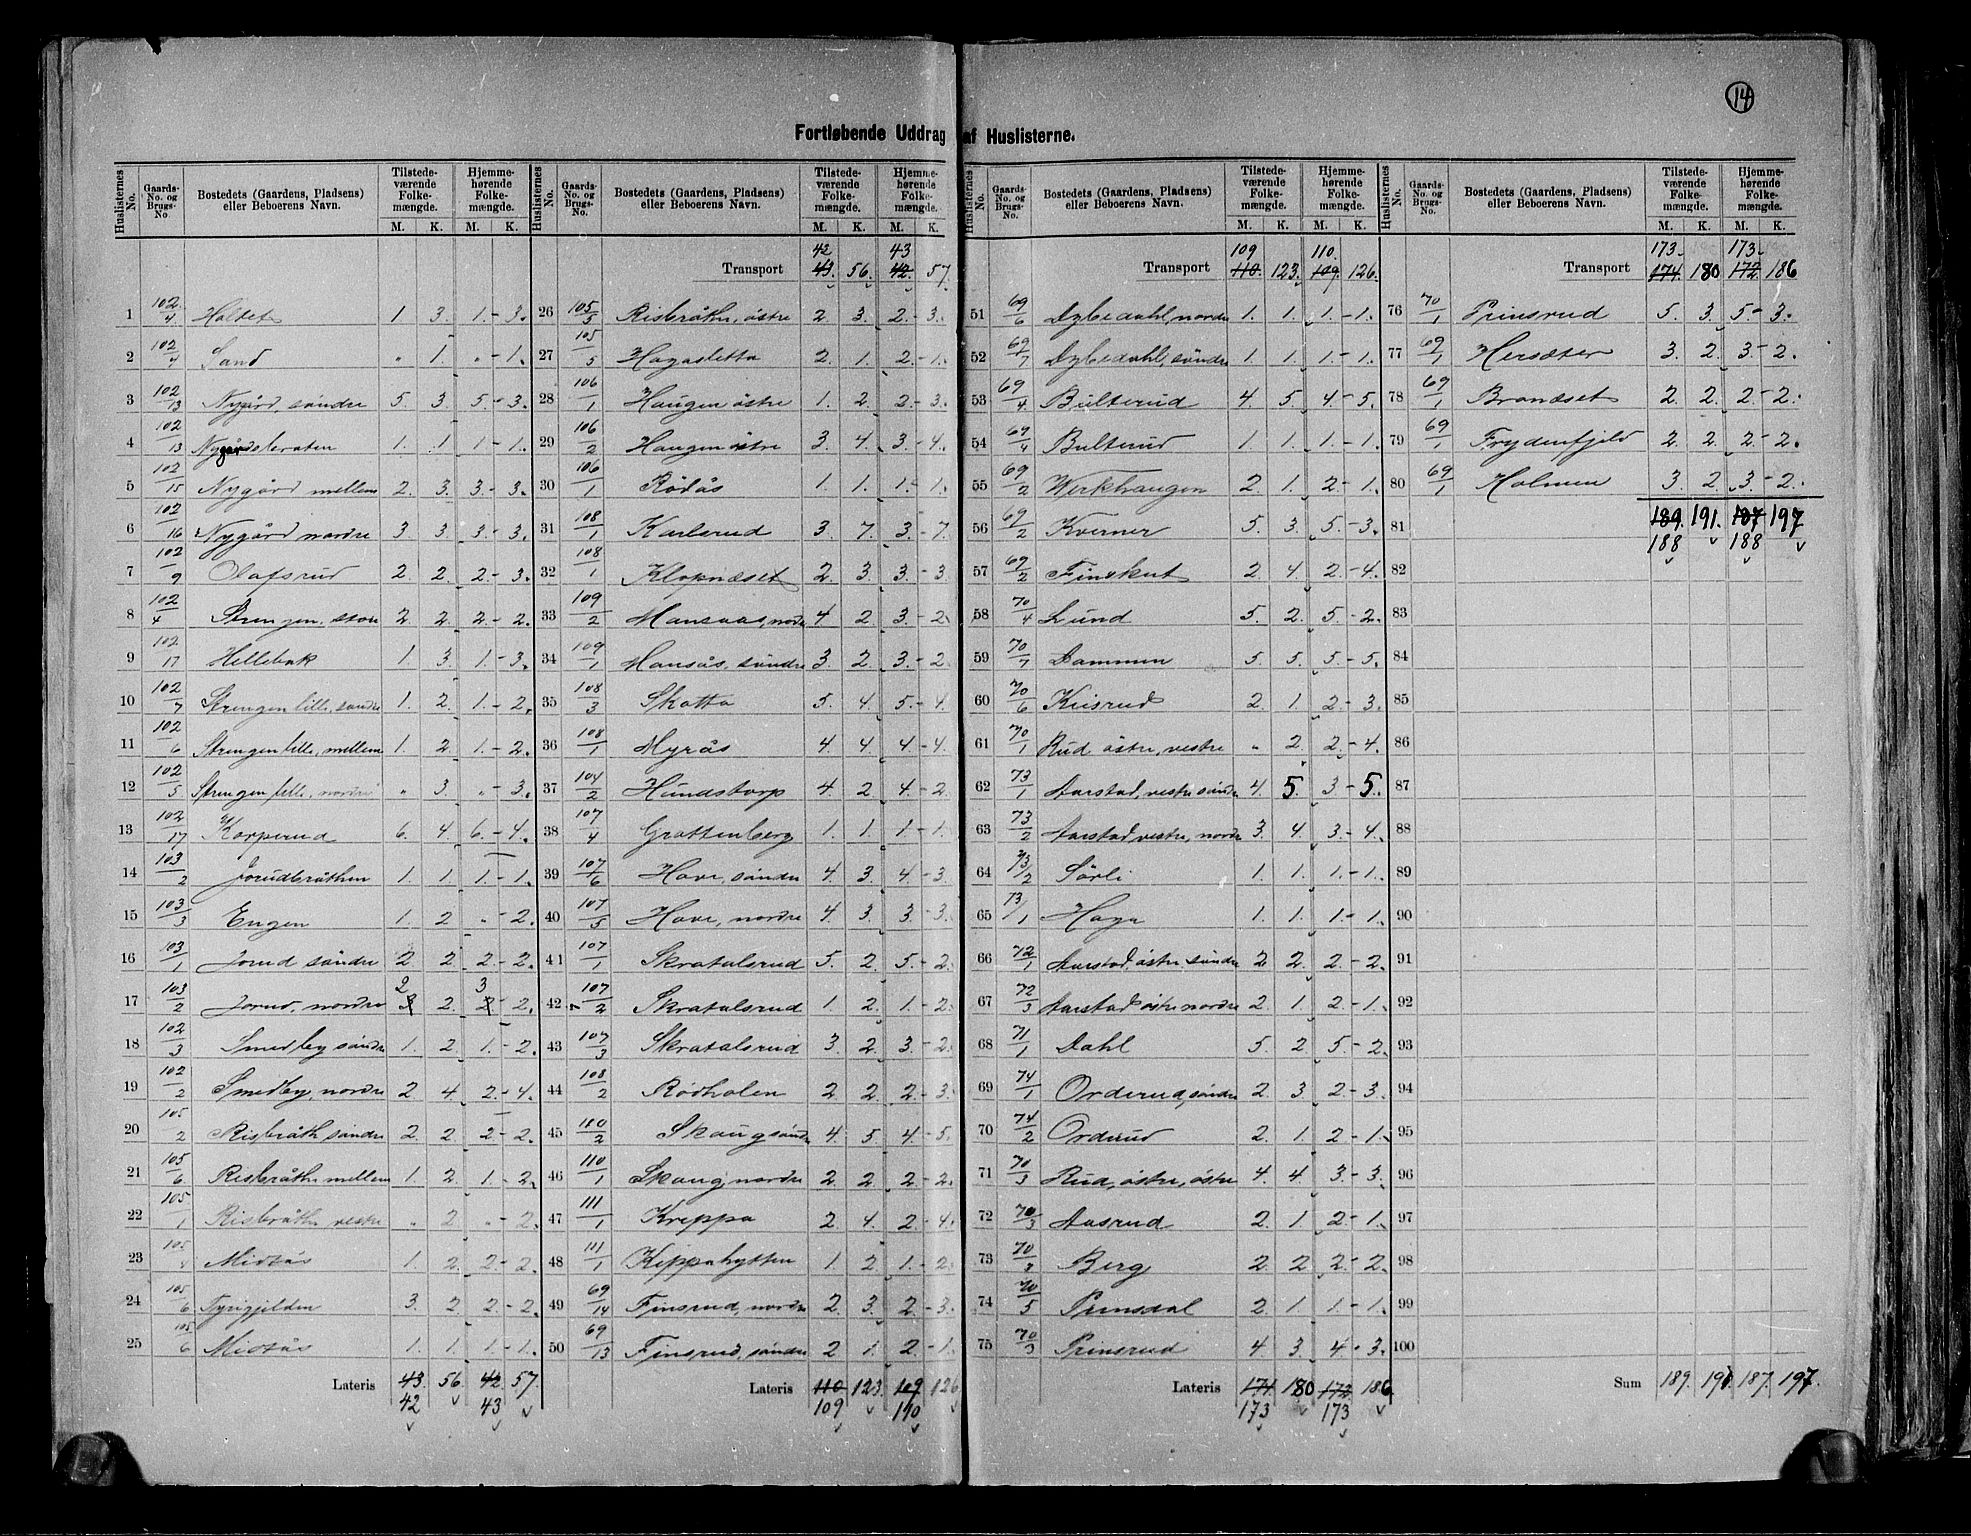 14
Fortløbende Uddrag af Huslisterne.
Huslisternes No. Gaards-No. og Brugs-No. Bostedets (Gaardens, Pladsens) eller Beboerens Navn. Tilstedeværende Folkemængde. M. K. Hjemmehørende Folkemængde. M. K.
1 102/4 Holtet 1 3. 1.- 3.
2 102/4 Sand " 1. " - 1.
3 102/13 Nygård, søndre 5. 3. 5.- 3.
4 102/13 Nygårdsbraten 1. 1 1- 1.
5 102/15 Nygård mellem 2. 3. 3.- 3.
6 102/16 Nygård nordre 3. 3. 3.- 3.
7 102/9 Olafsrud 2. 2. 2.- 3.
8 102/4 Strengen, store 2. 2. 2.- 2.
9 102/17 Hellebæk 1. 3. 1.- 3.
10 102/7 Strengen lille, søndre 1. 2. 1.- 2.
11 102/6 Strengen lille, mellem 1. 2. 1.- 2.
12 102/5 Strengen lille, nordre " 3. " - 3.
13 102/17 Korperud 6. 4. 6.- 4.
14 103/2 Jorudbråthen 1. 1. 1.- 1.
15 103/3 Engen 1. 2 " - 2.
16 103/1 Jorud søndre 2 2. 2.- 2.
17 103/2 Jorud, nordre 2 2. 3 - 2.
18 102/3 Smedby søndre 1. 2. 1.- 2.
19 102/2 Smedby, nordre 2 4. 2.- 4.
20 105/2 Risbråth søndre 2. 2. 2- 2.
21 105/6 Risbråthe mellem 1. 2. 1.- 2.
22 105/1 Risbråthe vestre " 2 " - 2.
23 105/4 Midtås 1. 2. 2- 2.
24 105/6 Tyrigjilden 3. 2. 2.- 2.
25 105/6 Midtås 1. 1. 1.- 1.
Lateris 43. 56. 42 57.
42 43
Transport 43. 56. 42. 57.
42 43
26 105/3 Risbråthe, østre 2. 3. 2.- 3.
27 105/5 Hagasletta 2. 1. 2.- 1.
28 106/1 Haugen østre 1. 2. 2.- 3.
29 106/2 Haugen østre 3. 4. 3.- 4.
30 106/1 Rødås 1. 1. 1.- 1.
31 108/1 Karlsrud 3. 7. 3.- 7.
32 108/1 Klopnæset 2. 3. 3.- 3
33 109/2 Mansaas, nordre 4 2. 3.- 2.
34 109/1 Mansås, søndre 3. 2. 3.- 2.
35 108/3 Skotta 5. 4. 5.- 4.
36 108/1 Myrås 4. 4. 4- 4.
37 104/2 Hundstorp 4. 2 4.- 2
38 107/4 Grottenberg 1. 1. 1- 1.
39 107/6 Hove, søndre 4. 3. 4- 3
40 107/5 Hove, nordre 4. 3. 3.- 3.
41 107/1 Skratalsrud 5. 2. 5.- 2.
42 107/2 Skratalsrud 1. 2. 1.- 2
43 107/3 Skratalsrud 3 2. 3.- 2.
44 108/2 Rødholen 2. 2. 2.- 3
45 110/2 Skaug søndre 4. 5 4.- 5.
46 110/1 Skaug nordre 2 2. 2- 2.
47 111/1 Kreppa 2 4. 2- 4.
48 111/1 Kippahytten 1. 2 1.- 2.
49 69/14 Finsrud, nordre 2. 3. 2.- 3.
50 69/13 Finsrud, søndre 2 1. 2.- 1.
Lateris 110 123. 109 126
109 110
Transport 110. 123. 109. 126.
109 110.
51 69/6 Dybedahl, nordre 1. 1. 1.- 1.
52 69/7 Dybedahl, søndre 1. 1. 1.- 1.
53 69/4 Bulterud 4. 5. 4.- 5.
54 69/4 Bulterud 1. 1. 1.- 1.
55 69/2 Werkhaugen 2. 1. 2.- 1.
56 69/2 Kverner 5. 3. 5.- 3.
57 69/2 Finskut 2. 4. 2.- 4.
58 70/4 Lund 5. 2. 5.- 2.
59 70/7 Dammen 5. 5. 5.- 5.
60 70/6 Krisrud 2. 1 2.- 3.
61 70/1 Rud østre, vestre " 2. 2.- 4.
62 73/1 Aarstad, vestre søndre 4. 5. 3- 5.
63 73/2 Aarstad vestre, nordre 3. 4. 3.- 4.
64 73/2 Sørli 1. 1. 1.- 1.
65 73/1 Haga 1. 1. 1.- 1.
66 72/1 Aarstad, østre søndre 2. 2. 2.- 2.
67 72/3 Aarstad østre nordre 2. 1. 2- 1.
68 71/1 Dahl 5. 2 5.- 2.
69 74/1 Orderud, søndre 2. 3 2.- 3.
70 74/2 Orderud 2. 1. 2- 1.
71 70/3 Rud, østre, østre 4. 4 3.- 3.
72 70/3 Aasrud 2. 1 2- 1.
73 70/3 Berg 2. 2 2.- 2.
74 70/5 Prinsdal 2. 1 1.- 1.
75 70/3 Prinsrud 4. 3. 4- 3.
Lateris 174. 180 172. 186.
173 173
Transport 174. 180 172. 186
173. 173.
76 70/1 Prinsrud 5. 3. 5.- 3.
77 69/1 Hersæter 3. 2. 3- 2.
78 69/1 Brandset 2. 2. 2.- 2.
79 69/1 Frydenfjeld 2. 2. 2- 2.
80 69/1 Holmen 3. 2. 3.- 2.
81 189. 191. 187 197
188 188
82
83
84
85
86
87
88
89
90
91
92
93
94
95
96
97
98
99
100
Sum 189. 191. 187. 197.